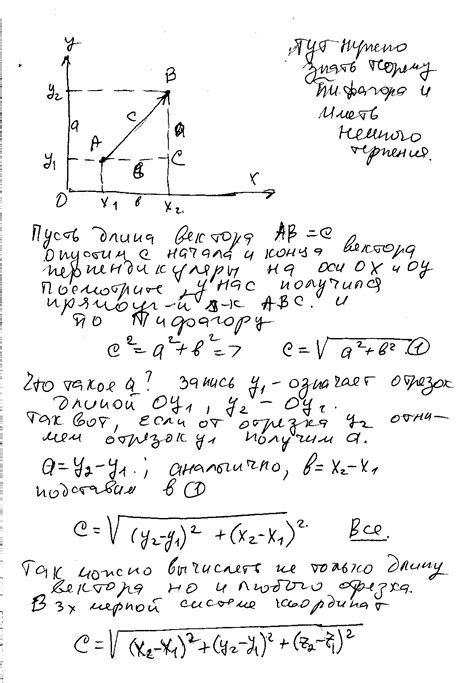 y
Тут нужно
знать теорему
Пифагора и
иметь
немного
терпения.
y₂
B
a
c
a
A
y₁
в
C
O
x₁
в
x₂
x
Пусть длина вектора AB = c
опустим с начала и конца вектора
перпендикуляры на оси OX и OY
Посмотрите, у нас получился
прямоуг-й з-к ABC. и
по Пифагору
c² = a² + в² => c = √a² + в² ①
Что такое a? Запись y₁ - означает отрезок
длиной Oy₁, y₂ - Oy₂.
так вот, если от отрезка y₂ отни-
мем отрезок y₁ получим a.
a = y₂ - y₁.; аналогично, в = x₂ - x₁
подставим в ①
c = √(y₂-y₁)² + (x₂-x₁)². Все.
Так можно вычислеть не только длину
вектора но и любого отрезка.
В 3х мерной системе координат
c = √(x₂-x₁)² + (y₂-y₁)² + (z₂-z₁)²